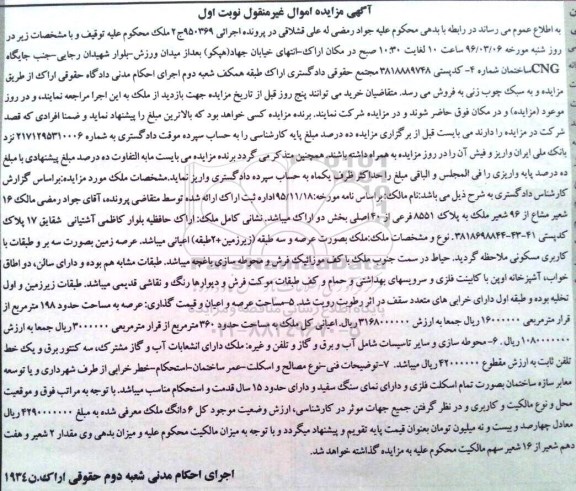 آگهی مزایده اموال غیرمنقول نوبت اول
به اطلاع عموم می رساند در رابطه با بدهی محکوم علیه جواد رمضی له علی قشلاقی در پرونده اجرائی ۹۵۰۳۶۹ج۲ ملک محکوم علیه توقیف و با مشخصات زیر در
روز شنبه مورخه ۹۶/۰۳/۰۶ ساعت ۱۰ لغایت ۱۰:۳۰ صبح در مکان اراک-انتهای خیابان جهاد(هپکو) بعداز میدان ورزش-بلوار شهیدان رجایی-جنب جایگاه
CNG-ساختمان شماره ۴- کدپستی ۳۸۱۸۸۸۹۷۴۸ مجتمع حقوقی دادگستری اراک طبقه همکف شعبه دوم اجرای احکام مدنی دادگاه حقوقی اراک از طریق
مزایده و به سبک چوب زنی به فروش می رسد. متقاضیان خرید می توانند پنج روز قبل از تاریخ مزایده جهت بازدید از ملک به این اجرا مراجعه نمایند، و در روز
موعود (مزایده) و در مکان فوق حاضر شوند و در مزایده شرکت نمایند. برنده مزایده کسی خواهد بود که بالاترین مبلغ را پیشنهاد نماید و ضمنا افرادی که قصد
شرکت در مزایده را دارند می بایست قبل از برگزاری مزایده ده درصد مبلغ پایه کارشناسی را به حساب سپرده موقت دادگستری به شماره ۲۱۷۱۲۹۵۳۱۰۰۶ نزد
بانک ملی ایران واریز و فیش آن را در روز مزایده به همراه داشته باشند. همچنین متذکر می گردد برنده مزایده می بایست مابه التفاوت ده درصد مبلغ پیشنهادی با مبلغ
ده درصد پایه واریزی را فی المجلس و الباقی مبلغ را حداکثر ظرف یکماه به حساب سپرده دادگستری واریز نماید.مشخصات ملک مورد مزایده:براساس گزارش
کارشناس دادگستری به شرح ذیل می باشد:نام مالک:براساس نامه مورخه:۹۵/۱۱/۱۸اداره ثبت اراک ارائه شده توسط متقاضی پرونده، آقای جواد رمضی مالک ۱۶
شعیر مشاع از ۹۶ شعیر ملک به پلاک ۸۵۵۱ فرعی از ۴۰ اصلی بخش دو اراک میباشد.نشانی کامل ملک: اراک حافظیه بلوار کاظمی آشتیانی شقایق ۱۷ پلاک
۴۱-۴۳ کدپستی ۳۸۱۸۶۹۸۸۴۴. نوع و مشخصات ملک:ملک بصورت عرصه و سه طبقه (زیرزمین+۲طبقه) اعیانی میباشد. عرصه زمین بصورت سه بر و طبقات با
کاربری مسکونی ملاحظه گردید. حیاط در سمت جنوب ملک با کف موزائیک فرش و محوطه سازی باغچه میباشد. طبقات مشابه هم بوده و دارای سالن، دو اطاق
خواب، آشپزخانه اوپن با کابینت فلزی و سرویسهای بهداشتی و حمام و کف طبقات موکت فرش و دیوارها رنگ و نقاشی قدیمی میباشد. طبقات زیرزمین و اول
تخلیه بوده و طبقه اول دارای خرابی های متعدد سقف در اثر رطوبت رویت شد. ۵-مساحت عرصه و اعیان و قیمت گذاری: عرصه به مساحت حدود ۱۹۸ مترمربع از
قرار مترمربعی ۱۶۰۰۰۰۰۰ ریال جمعا به ارزش ۳۱۶۸۰۰۰۰۰۰ریال. اعیانی کل ملک به مساحت حدود ۳۶۰ مترمربع از قرار مترمربعی ۳۰۰۰۰۰۰ ریال جمعا به ارزش
۱۰۸۰۰۰۰۰۰۰ ریال. ۶-محوطه سازی و سایر تاسیسات شامل آب و برق و گاز و تلفن و غیره: ملک دارای انشعابات آب و گاز مشترک، سه کنتور برق و یک خط
تلفن ثابت به ارزش مقطوع ۴۲۰۰۰۰۰۰ ریال میباشد. ۷-توضیحات فنی-نوع مصالح و اسکلت-عمر ساختمان-استحکام-خطر خرابی از طرف شهرداری و یا توسعه
معابر سازه ساختمان بصورت تمام اسکلت فلزی و دارای نمای سنگ سفید و دارای حدود ۱۵ سال قدمت و استحکام مناسب میباشد. با توجه به مراتب فوق و موقعیت
محل و نوع مالکیت و کاربری و در نظر گرفتن جمیع جهات موثر در کارشناسی، ارزش وضعیت موجود کل ۶ دانگ ملک معرفی شده به مبلغ ۴۲۹۰۰۰۰۰۰۰ ریال
معادل چهارصد و بیست و نه میلیون تومان بعنوان قیمت پایه تقویم و پیشنهاد میگردد و با توجه به میزان مالکیت محکوم علیه و میزان بدهی وی مقدار ۲ شعیر و هفت
دهم شعیر از ۱۶ شعیر سهم مالکیت محکوم علیه به مزایده گذاشته خواهد شد.
اجرای احکام مدنی شعبه دوم حقوقی اراک.ن۱۹۳۴